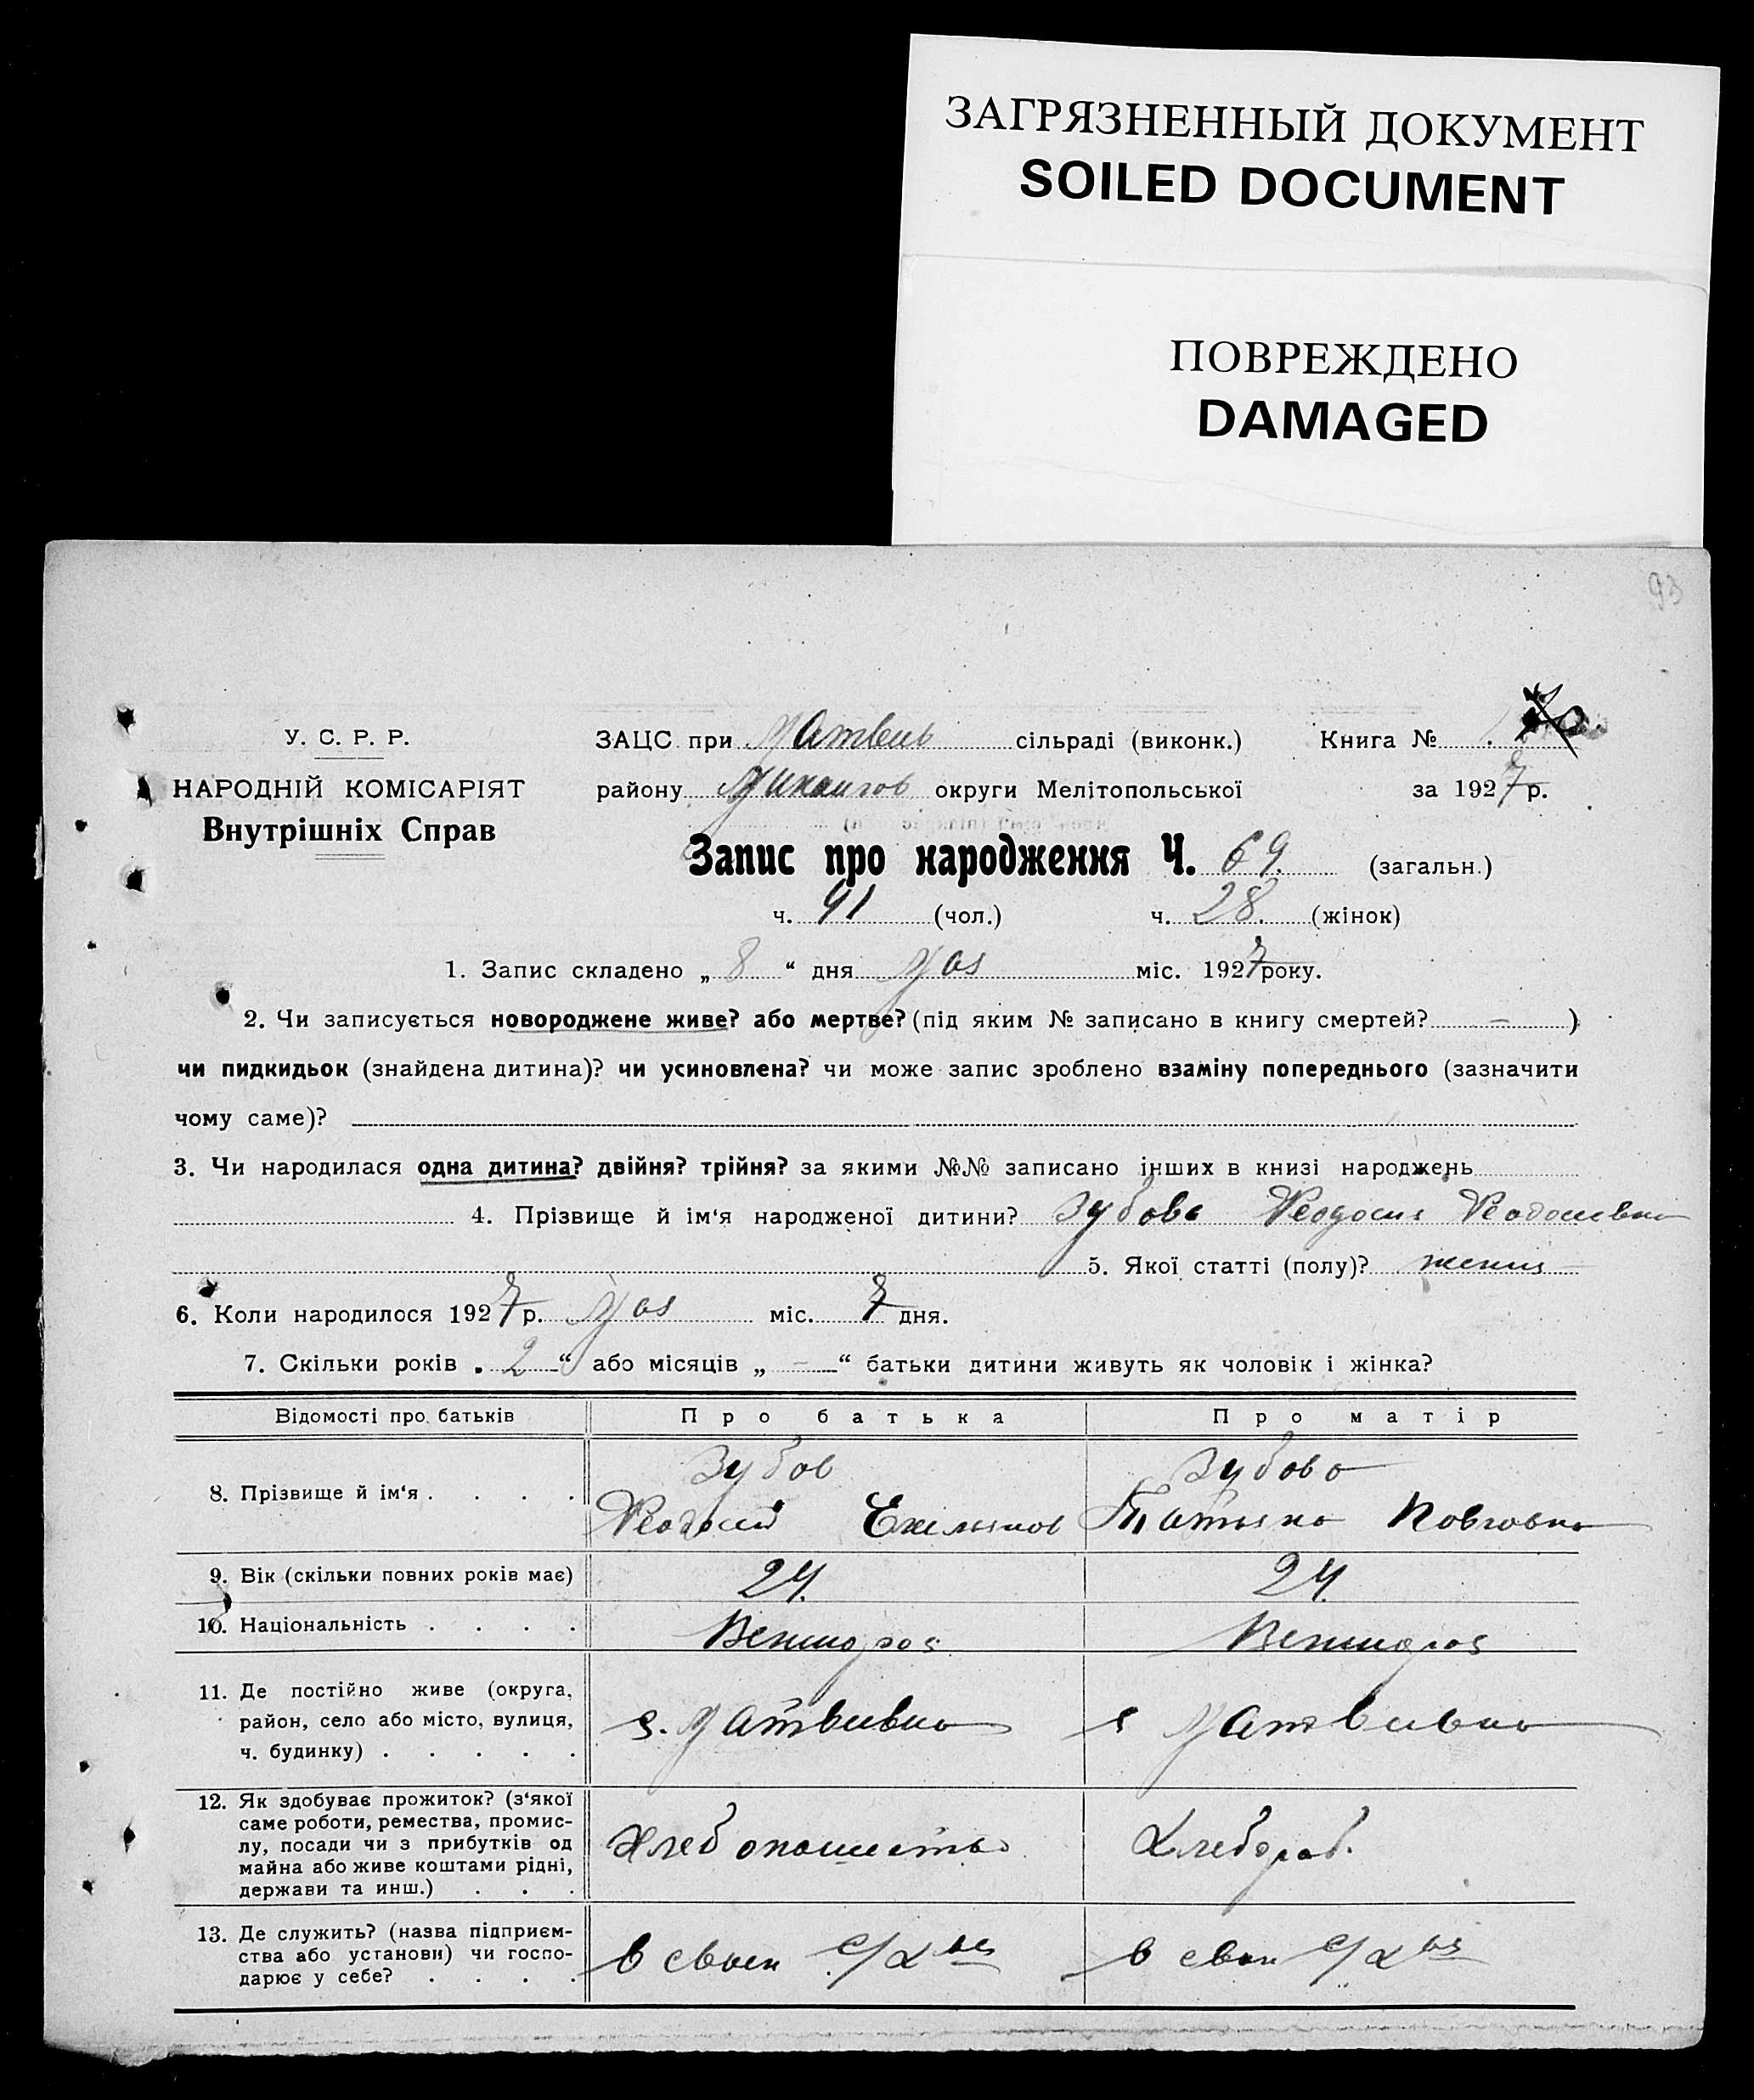 ЗАГРЯЗНЕННЫЙ ДОКУМЕНТ
SOILED DOCUMENT
ПОВРЕЖДЕНО
DAMAGED
93
У. С. Р. Р.
НАРОДНІЙ КОМІСАРІЯТ
Внутрішніх Справ
ЗАЦС при Матвеив сільраді (виконк.) Книга №
району Михайлов округи Мелітопольської за 1927 р.
Запис про народження Ч. 69. (загальн.)
ч. 41 (чол.) ч. 28. (жінок)
1. Запис складено „ 8 “ дня мая міс. 1927 року.
2. Чи записується новороджене живе? або мертве? (під яким № записано в книгу смертей? – )
чи пидкидьок (знайдена дитина)? чи усиновлена? чи може запис зроблено взаміну попереднього (зазначити
чому саме)?
3. Чи народилася одна дитина? двійня? трійня? за якими №№ записано інших в книзі народжень
4. Прізвище й ім‘я народженої дитини? Зубова Феодосия Феодосиевна
5. Якої статті (полу)?
6. Коли народилося 1927 р. мая міс. 7 дня.
7. Скільки років „ 2 “ або місяців „ - “ батьки дитини живуть як чоловік і жінка?
Відомості про батьків Про батька Про матір
8. Прізвище й ім‘я . . . . Зубов Зубова
Феодосий Татьяна Павловна
9. Вік (скільки повних років має) 24. 24.
10. Національність . . . .
11. Де постійно живе (округа,
район, село або місто, вулиця,
ч. будинку) . . . . . с. Матвеивка с Матвеивка
12. Як здобуває прожиток? (з‘якої
саме роботи, ремества, промис-
лу, посади чи з прибутків од
майна або живе коштами рідні,
держави та инш.) . . . Хлебопашество Хлебороб.
13. Де служить? (назва підприєм-
ства або установи) чи госпо-
дарює у себе? . . . . в своем с/х ве в своем с/х ве